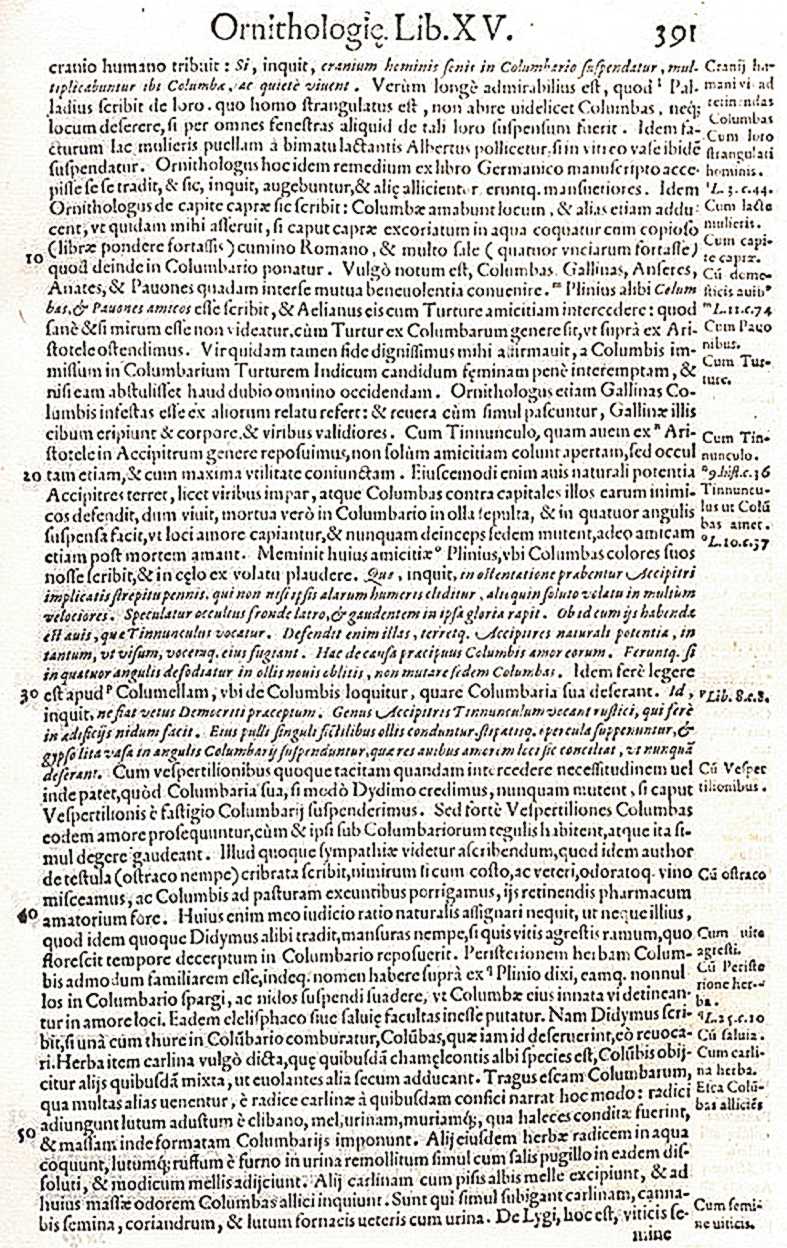 Ornithologię. Lib. XV. 391
cranio humano tribuit: Si, inquit, cranium hominis senis in Columbario suspendatur, mul-
tiplicabuntur ibi Columbæ, ac quietè viuent. Verùm longè admirabilius est, quod l Pal-
ladius scribit de loro. quo homo strangulatus est, non abire uidelicet Columbas, neq;
locum deserere, si per omnes fenestras aliquid de tali loro suspensum fuerit. Idem fa-
cturum lac mulieris puellam à bimatu lactantis Albertus pollicetur, si in vitreo vase ibidē
suspendatur. Ornithologus hoc idem remedium ex libro Germanico manuscripto acce-
pisse se se tradit, & sic, inquit, augebuntur, & alię allicientur, eruntq. mansuetiores. Idem
Ornithologus de capite capræ sic scribit: Columbæ amabunt locum, & alias etiam addu
cent, vt quidam mihi asseruit, si caput capræ excoriatum in aqua coquatur cum copioso
10 (libræ pondere fortassis) cumino Romano, & multo sale (quatuor vnciarum fortasse)
quod deinde in Columbario ponatur. Vulgò notum est, Columbas, Gallinas, Anseres,
Anates, & Pauones quadam inter se mutua beneuolentia conuenire. m Plinius alibi Colum
bas, & Pauones amicos esse scribit, & Aelianus eis cum Turture amicitiam intercedere: quod
sanè & si mirum esse non videatur, cùm Turtur ex Columbarum genere sit, vt suprà ex Ari-
stotele ostendimus. Vir quidam tamen fide dignissimus mihi affirmauit, a Columbis im-
missum in Columbarium Turturem Indicum candidum fęminam penè interemptam, &
nisi eam abstulisset haud dubio omnino occidendam. Ornithologus etiam Gallinas Co-
lumbis infestas esse ex aliorum relatu refert: & reuera cùm simul pascuntur, Gallinæ illis
cibum eripiunt & corpore, & viribus validiores. Cum Tinnunculo, quam auem ex n Ari-
stotele in Accipitrum genere reposuimus, non solùm amicitiam colunt apertam, sed occul
20 tam etiam, & cum maxima vtilitate coniunctam. Eiuscemodi enim auis naturali potentia
Accipitres terret, licet viribus impar, atque Columbas contra capitales illos earum inimi-
cos defendit, dum viuit, mortua verò in Columbario in olla sepulta, & in quatuor angulis
suspensa facit, vt loci amore capiantur, & nunquam deinceps sedem mutent, adeo amicam
etiam post mortem amant. Meminit huius amicitiæ o Plinius, vbi Columbas colores suos
nosse scribit, & in cęlo ex volatu plaudere. Qua, inquit, in ostentatione præbentur Accipitri
implicatis strepitu pennis, qui non nisi ipsis alarum humeris eliditur, alioquin soluto volatu in multum
velociores. Speculatur occultus fronde latro, & gaudentem in ipsa gloria rapit. Ob id cum ijs habenda
est auis, quæ Tinnunculus vocatur. Defendit enim illas, terretq. Accipitres naturali potentia, in
tantum, vt visum, vocemq. eius fugiant. Hac de causa præcipuus Columbis amor eorum. Feruntq. si
in quatuor angulis defodiatur in ollis nouis oblitis, non mutare sedem Columbas. Idem ferè legere
30 est apud p Columellam, vbi de Columbis loquitur, quare Columbaria sua deserant. Id,
inquit, ne fiat vetus Democriti præceptum. Genus Accipitris Tinnunculum vocant rustici, qui ferè
in ædificijs nidum facit. Eius pulli singuli fictilibus ollis conduntur, stipatisq. opercula supponuntur, &
gypso lita vasa in angulis Columbarij suspenduntur, quæ res auibus amorem loci sic conciliat, vt nunquā
deserant. Cum vespertilionibus quoque tacitam quandam intercedere necessitudinem uel
inde patet, quòd Columbaria sua, si modò Dydimo credimus, nunquam mutent, si caput
Vespertilionis è fastigio Columbarij suspenderimus. Sed fortè Vespertiliones Columbas
eodem amore prosequuntur, cùm & ipsi sub Columbariorum tegulis habitent, atque ita si-
mul degere gaudeant. Illud quoque sympathiæ videtur ascribendum, quod idem author
de testula (ostraco nempe) cribrata scribit, nimirum si cum costo, ac veteri, odoratoq. vino
misceamus, ac Columbis ad pasturam exeuntibus porrigamus, ijs retinendis pharmacum
40 amatorium fore. Huius enim meo iudicio ratio naturalis assignari nequit, ut neque illius,
quod idem quoque Didymus alibi tradit, mansuras nempe, si quis vitis agrestis ramum, quo
florescit tempore decerptum in Columbario reposuerit. Peristerionem herbam Colum-
bis admodum familiarem esse, indeq. nomen habere suprà ex q Plinio dixi, eamq. nonnul
los in Columbario spargi, ac nidos suspendi suadere, vt Columbæ eius innata vi detinean-
tur in amore loci. Eadem elelisphaco siue saluię facultas inesse putatur. Nam Didymus scri-
bit, si unà cum thure in Colūbario comburatur, Colūbas, quæ iam id deseruerint, eò reuoca-
ri. Herba item carlina vulgò dicta, quę quibusdā chamęleontis albi species est, Colūbis obij-
citur alijs quibusdā mixta, ut euolantes alia secum adducant. Tragus escam Columbarum,
qua multas alias uenentur, è radice carlinæ à quibusdam confici narrat hoc modo: radici
adiungunt lutum adustum è clibano, mel, urinam, muriamq́;, qua haleces conditæ fuerint,
50 & massam inde formatam Columbarijs imponunt. Alij eiusdem herbæ radicem in aqua
coquunt, lutumq́; ruffum è furno in urina remollitum simul cum salis pugillo in eadem dis-
soluti, & modicum mellis adijciunt. Alij carlinam cum pisis albis melle excipiunt, & ad
huius massæ odorem Columbas allici inquiunt. Sunt qui simul subigant carlinam, canna-
bis semina, coriandrum, & lutum fornacis ueteris cum urina. De Lygi, hoc est, viticis se-
mine
Cranij hu-
mani vi ad
retinendas
Columbas
Cum loro
strangulati
hominis.
l L. 3. c. 44.
Cum lacte
mulieris.
Cum capi-
te capræ.
Cū dome-
sticis auib9
m L. 11. c. 74
Cum Pauo
nibus.
Cum Tur-
ture.
Cum Tin-
nunculo.
n 9. hist. c. 36
Tinnuncu-
lus ut Colū
bas amet.
o L. 10. c. 37
p Lib. 8. c. 8.
Cū Vesper
tilionibus.
Cū ostraco
Cum uite
agresti.
Cū Periste
rione her-
ba.
q L. 25. c. 10
Cū saluia.
Cum carli-
na herba.
Esca Colū-
bas alliciēs
Cum semi-
ne uiticis.